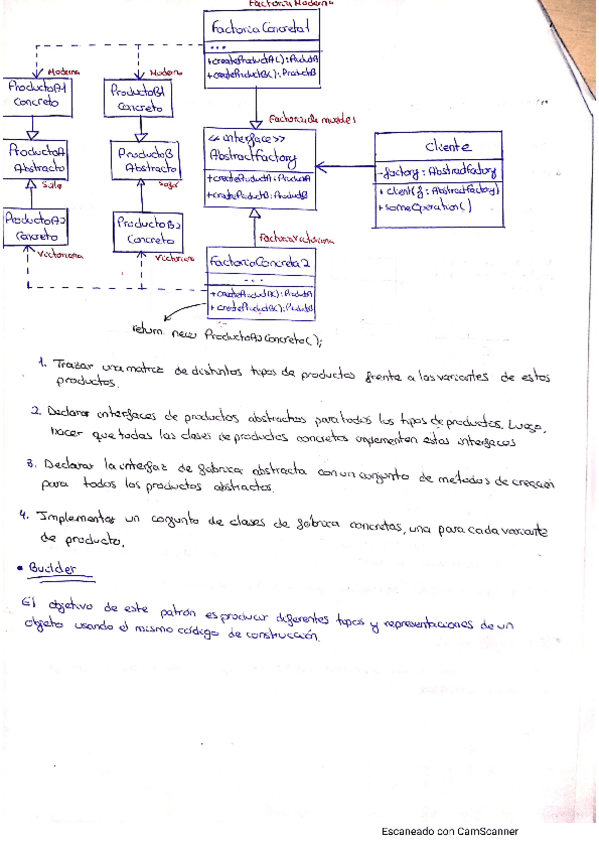 Factoria Moderna
FactoriaConcreta1
...
+createProductA(): ProductA
+createProductB(): ProductB
Moderna
Moderna
ProductoA1
Concreto
ProductoB1
Concreto
Factoria de muebles
<<interface>>
AbstractFactory
+createProductA: ProductA
+createProductB: ProductB
Cliente
-factory: AbstractFactory
+client(f: AbstractFactory)
+someOperation()
ProductoA
Abstracto
ProductoB
Abstracto
Sofa
ProductoA2
Concreto
ProductoB2
Concreto
Victoriana
Victoriana
Factoria Victoriana
FactoriaConcreta2
...
+createProductA(): ProductA
+createProductB(): ProductB
return new ProductoA2Concreto();
1. Trazar una matriz de distintos tipos de productos frente a las variantes de estos
productos.
2. Declarar interfaces de productos abstractos para todos los tipos de productos. Luego,
hacer que todas las clases de productos concretos implementen estas interfaces
3. Declarar la interfaz de fabrica abstracta con un conjunto de metodos de creación
para todos los productos abstractos.
4. Implementar un conjunto de clases de fabrica concretas, una para cada variante
de producto.
• Builder
El objetivo de este patrón es producir diferentes tipos y representaciones de un
objeto usando el mismo código de construcción.
Escaneado con CamScanner